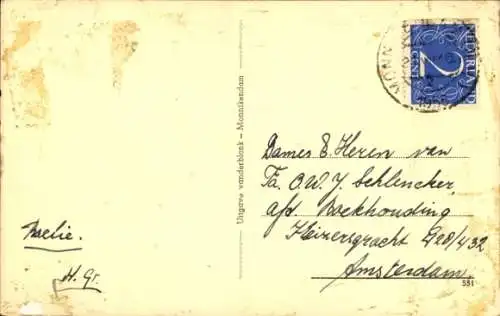 Uitgave vanderblonk - Monnikendam
NEDERLAND
2
CENT
MONN
Dames E. Heren van
Fa. O.W.J. Schlencker,
afd. Boekhouding
Keizersgracht 428/432
Amsterdam
H. Gr.
551